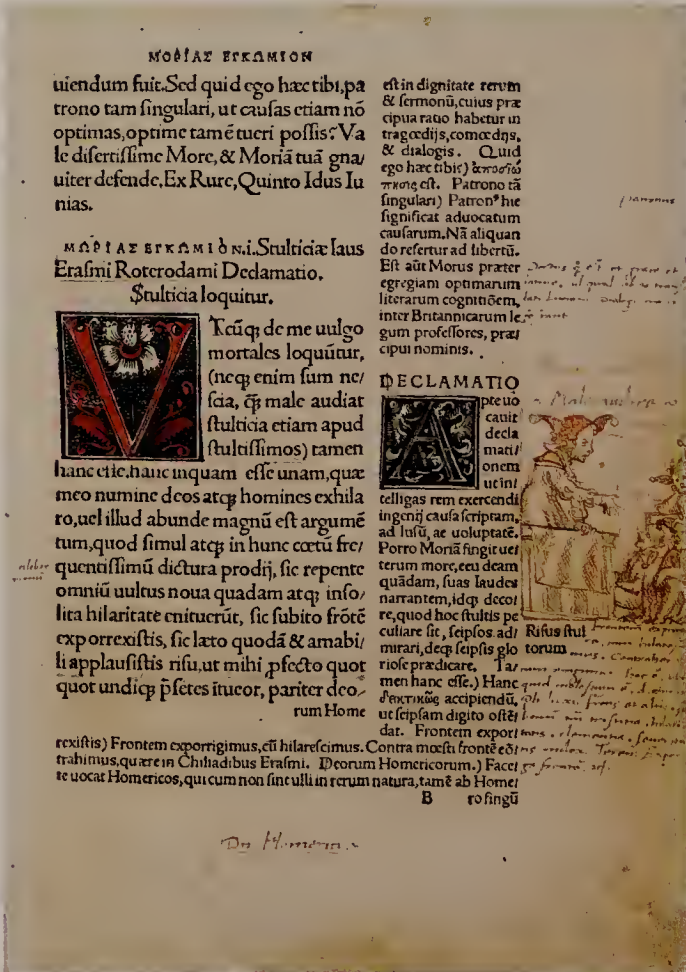 ΜΩΡΊΑΣ ΕΓΚΩΜΙΟΝ
uiendum fuit. Sed quid ego hæc tibi, pa
trono tam ſingulari, ut cauſas etiam nõ
optimas, optime tamẽ tueri poſſis? Va
le diſertiſſime More, & Moriã tuã gna/
uiter defende, Ex Rure, Quinto Idus Iu
nias.
ΜΩΡΙΑΣ ΕΓΚΩΜΙΟΝ.i. Stulticiæ laus
Eraſmi Roterodami Declamatio.
Stulticia loquitur.
VTcũq; de me uulgo
mortales loquũtur,
(neq; enim ſum neſ/
ſcia, q̃ male audiat
ſtulticia etiam apud
ſtultiſſimos) tamen
hanc eſſe, hanc inquam eſſe unam, quæ
meo numine deos atq; homines exhila
ro, uel illud abunde magnũ eſt argumẽ
tum, quod ſimul atq; in hunc cœtũ fre/
quentiſſimũ dictura prodij, ſic repente
omniũ uultus noua quadam atq; inſo/
lita hilaritate enituerũt, ſic ſubito frõtẽ
exporrexiſtis, ſic læto quodã & amabi/
li applauſiſtis riſu, ut mihi ꝓfecto quot
quot undiq; pſẽtes ĩtueor, pariter deo/
rum Home
eſt in dignitate rerum
& ſermonũ, cuius præ
cipua ratio habetur in
tragœdijs, comœdijs,
& dialogis. Quid
ego hæc tibi) ἀποσιώ
πησις eſt. Patrono tã
ſingulari) Patronꝰ hic
ſignificat aduocatum
cauſarum. Nã aliquan
do refertur ad libertũ.
Eſt aũt Morus præter
egregiam optimarum
literarum cognitiõem,
inter Britannicarum le
gum profeſſores, præ/
cipui nominis.
DECLAMATIO
Apte uo
cauit
decla
mati/
onem
ut in/
telligas rem exercendi
ingenij cauſa ſcriptam,
ad luſũ, ac uoluptatẽ.
Porro Moriã fingit ue/
terum more, ceu deam
quãdam, ſuas laudes
narrantem, idq; deco/
re, quod hoc ſtultis pe
culiare ſit, ſeipſos ad/
mirari, deq; ſeipſis glo
rioſe prædicare. Ta/
men hanc eſſe.) Hanc
δεικτικῶς accipiendũ,
ut ſeipſam digito oſtẽ/
dat. Frontem expor/
Riſus ſtul
torum
rexiſtis) Frontem exporrigimus, cũ hilareſcimus. Contra mœſti frontẽ cõ/
trahimus, quære in Chiliadibus Eraſmi. Deorum Homericorum.) Face/
te uocat Homericos, qui cum non ſint ulli in rerum natura, tamẽ ab Home/
B ro fingũ